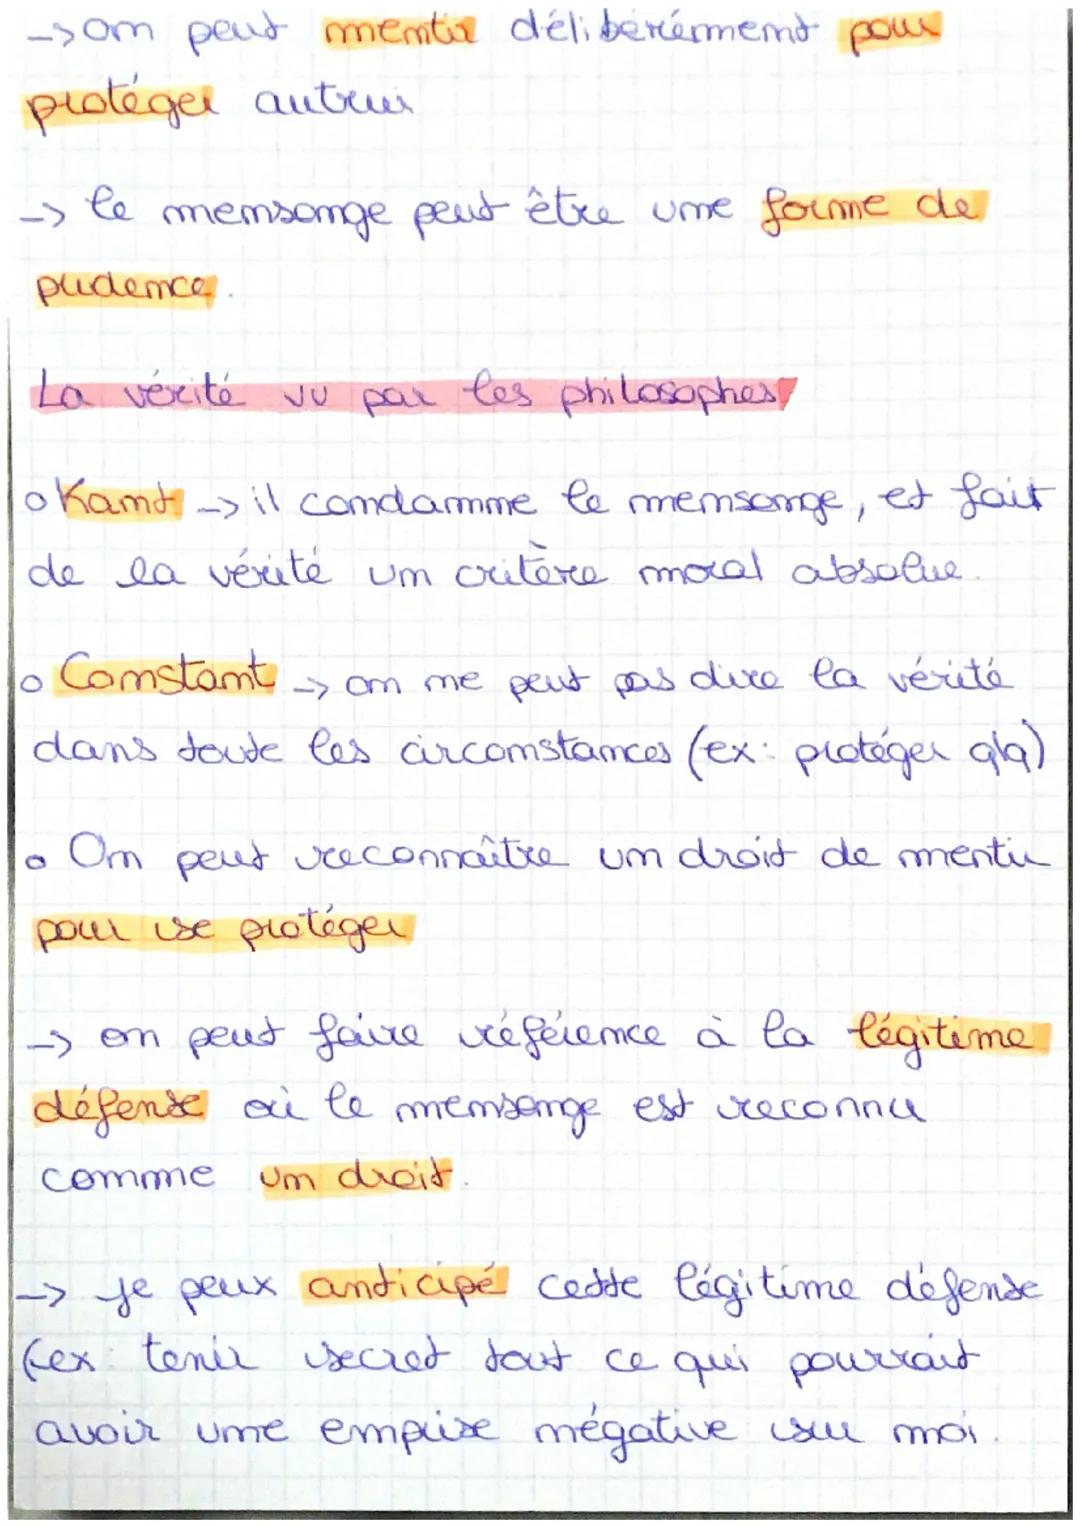 -> on peut mentir délibérément pour
protéger autrui
-> le mensonge peut être une forme de
prudence.
La vérité vu par les philosophes
o Kant -> il condamne le mensonge, et fait
de la vérité un critère moral absolue.
o Constant -> on ne peut pas dire la vérité
dans toute les circonstances (ex: protéger qlq)
o On peut reconnaître un droit de mentir
pour se protéger
-> on peut faire référence à la légitime
défense où le mensonge est reconnu
comme un droit.
-> je peux anticipé cette légitime défense
(ex: tenir secret tout ce qui pourrait
avoir une emprise négative sur moi.